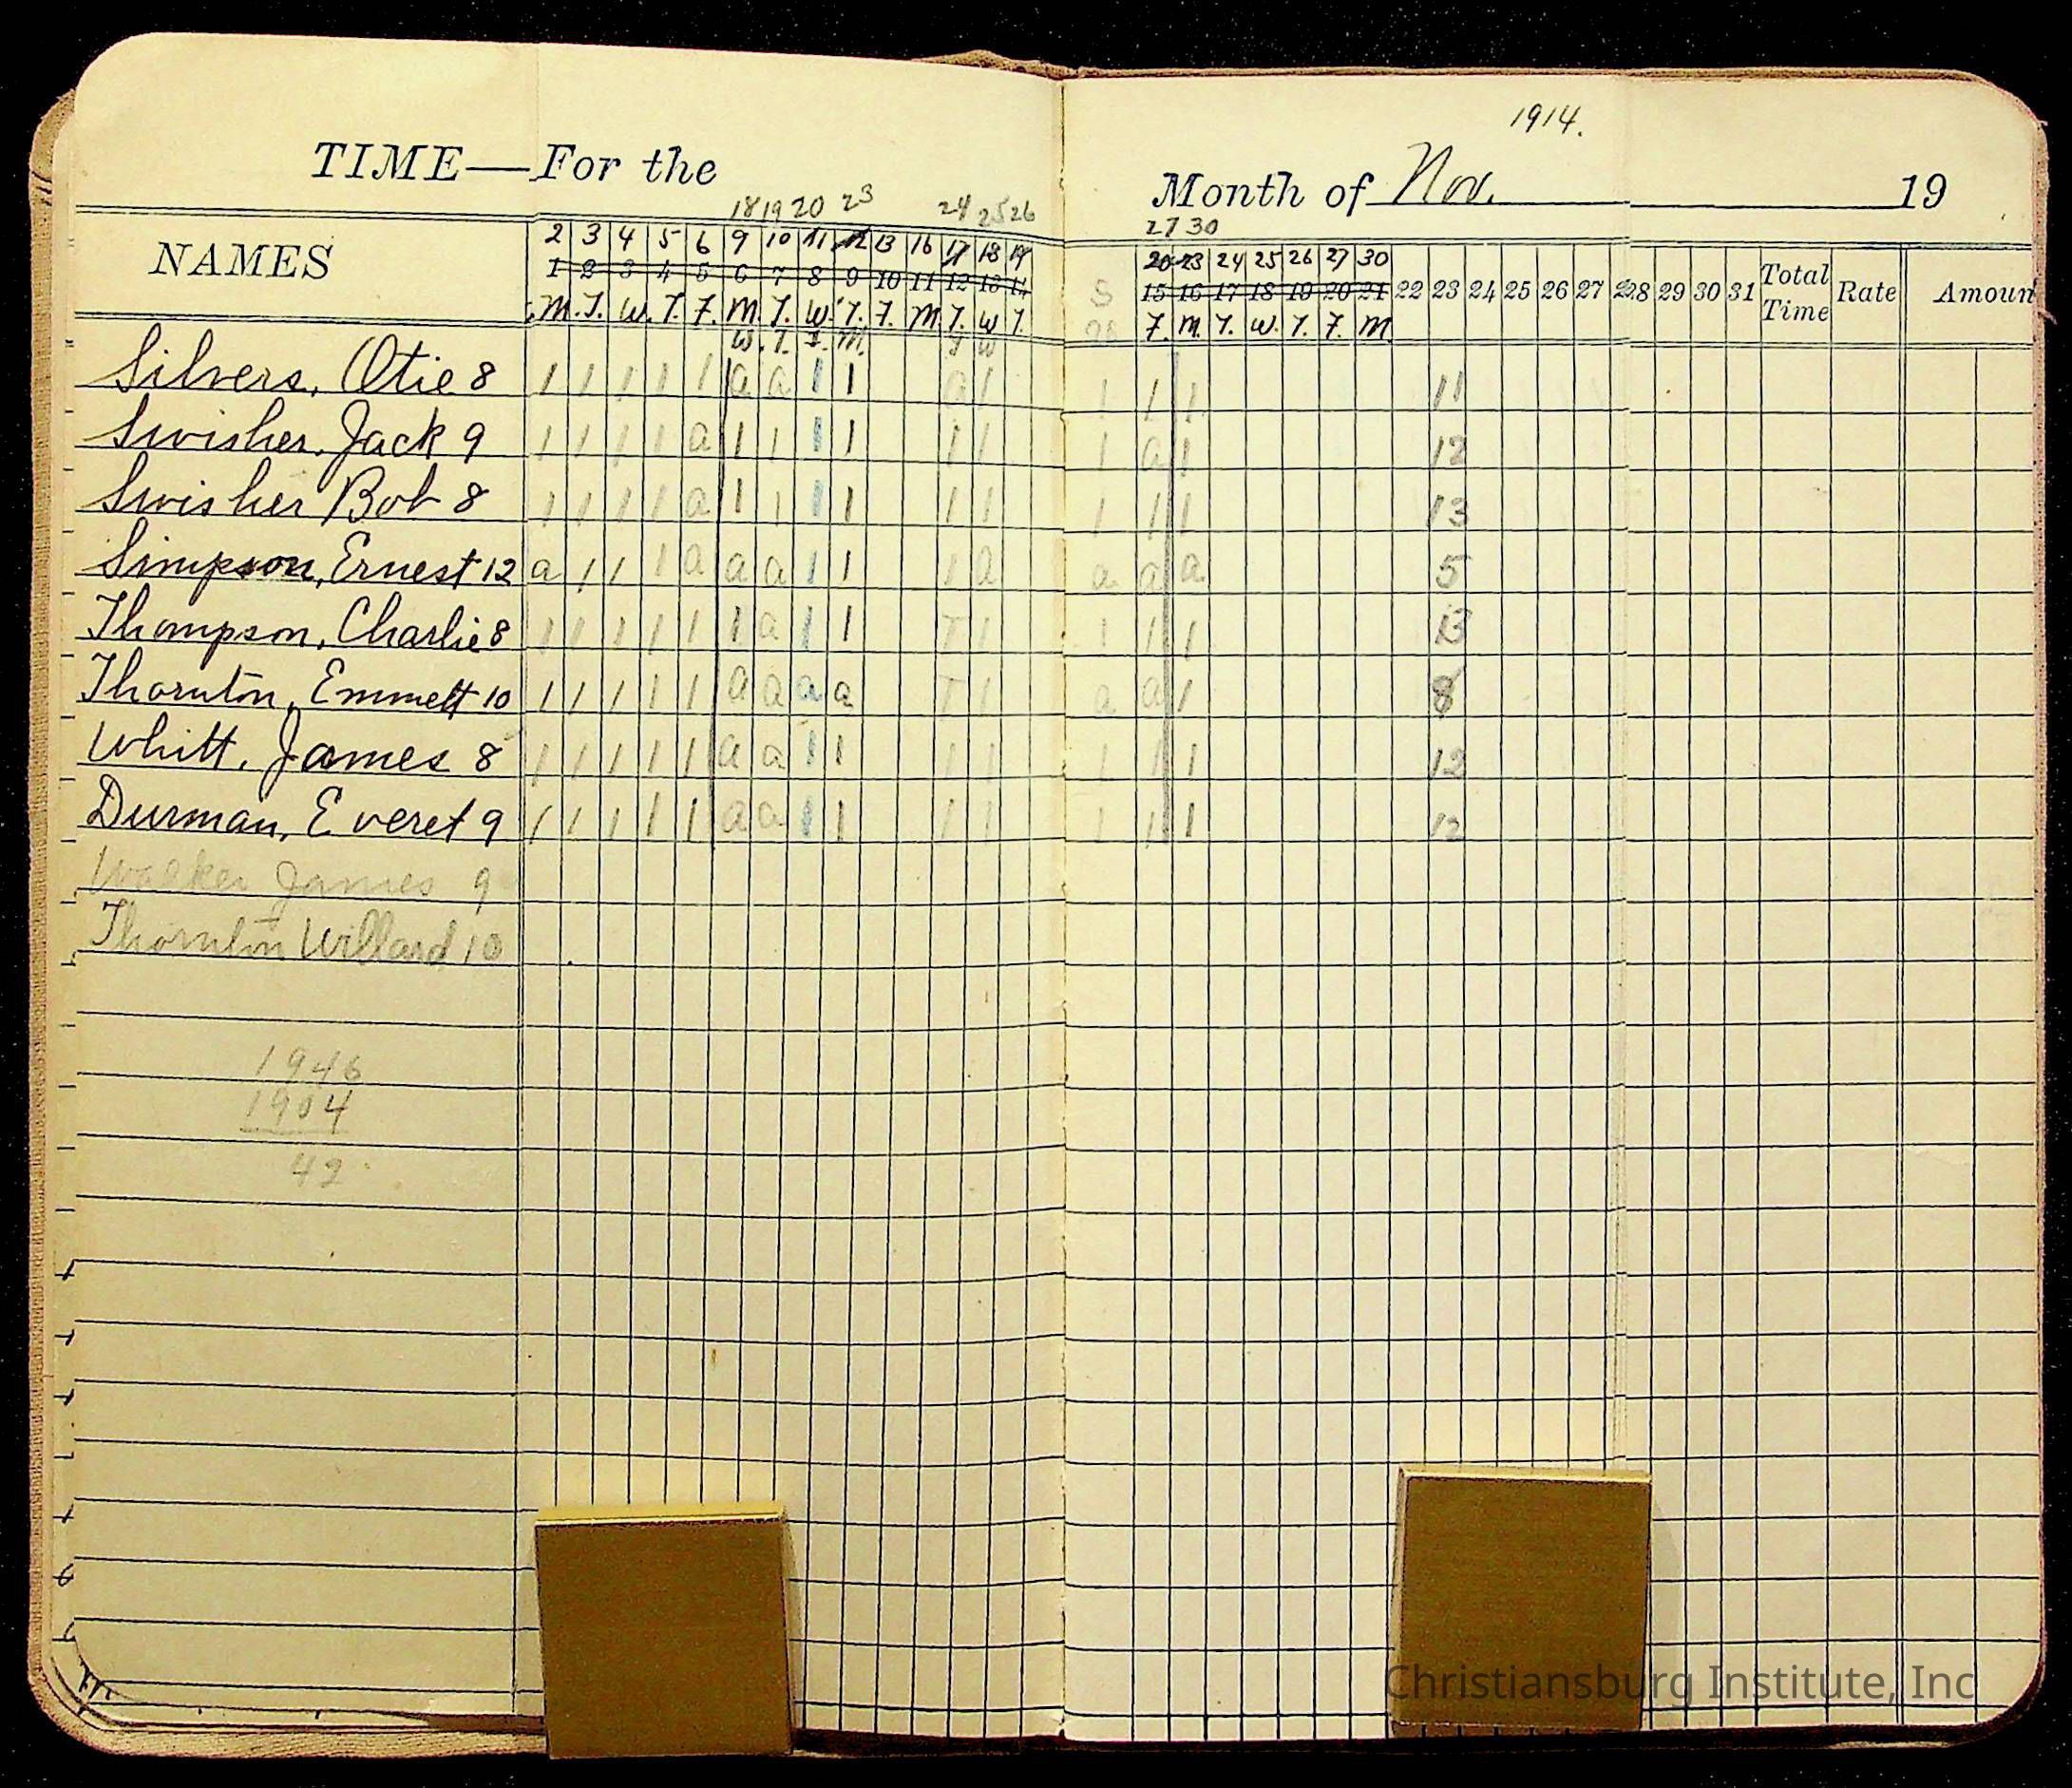 1914.
TIME—For the Month of Nov. 19
18 19 20 23 24 25 26 27 30
NAMES 2 3 4 5 6 9 10 11 12 13 16 17 18 19 20 23 24 25 26 27 30
1 2 3 4 5 6 7 8 9 10 11 12 13 14 15 16 17 18 19 20 21 22 23 24 25 26 27 28 29 30 31 Total Time Rate Amount
M. T. W. T. F. M. T. W. T. F. M. T. W T. F. M. T. W. T. F. M
W. T. F. M. T W
Silvers, Otie 8 1 1 1 1 1 a a 1 1 a 1 1 1 1 11
Swisher, Jack 9 1 1 1 1 a 1 1 1 1 1 1 1 a 1 12
Swisher Bob 8 1 1 1 1 a 1 1 1 1 1 1 1 1 1 13
Simpson, Ernest 12 a 1 1 1 a a a 1 1 1 a a a a 5
Thompson, Charlie 8 1 1 1 1 1 1 a 1 1 T 1 1 1 1 13
Thornton, Emmett 10 1 1 1 1 1 a a a a T 1 a a 1 8
Whitt, James 8 1 1 1 1 1 a a 1 1 1 1 1 1 1 12
Durman, Everet 9 1 1 1 1 1 a a 1 1 1 1 1 1 1 12
Walker James 9
Thornton Willard 10
1946
1904
42
Christiansburg Institute, Inc